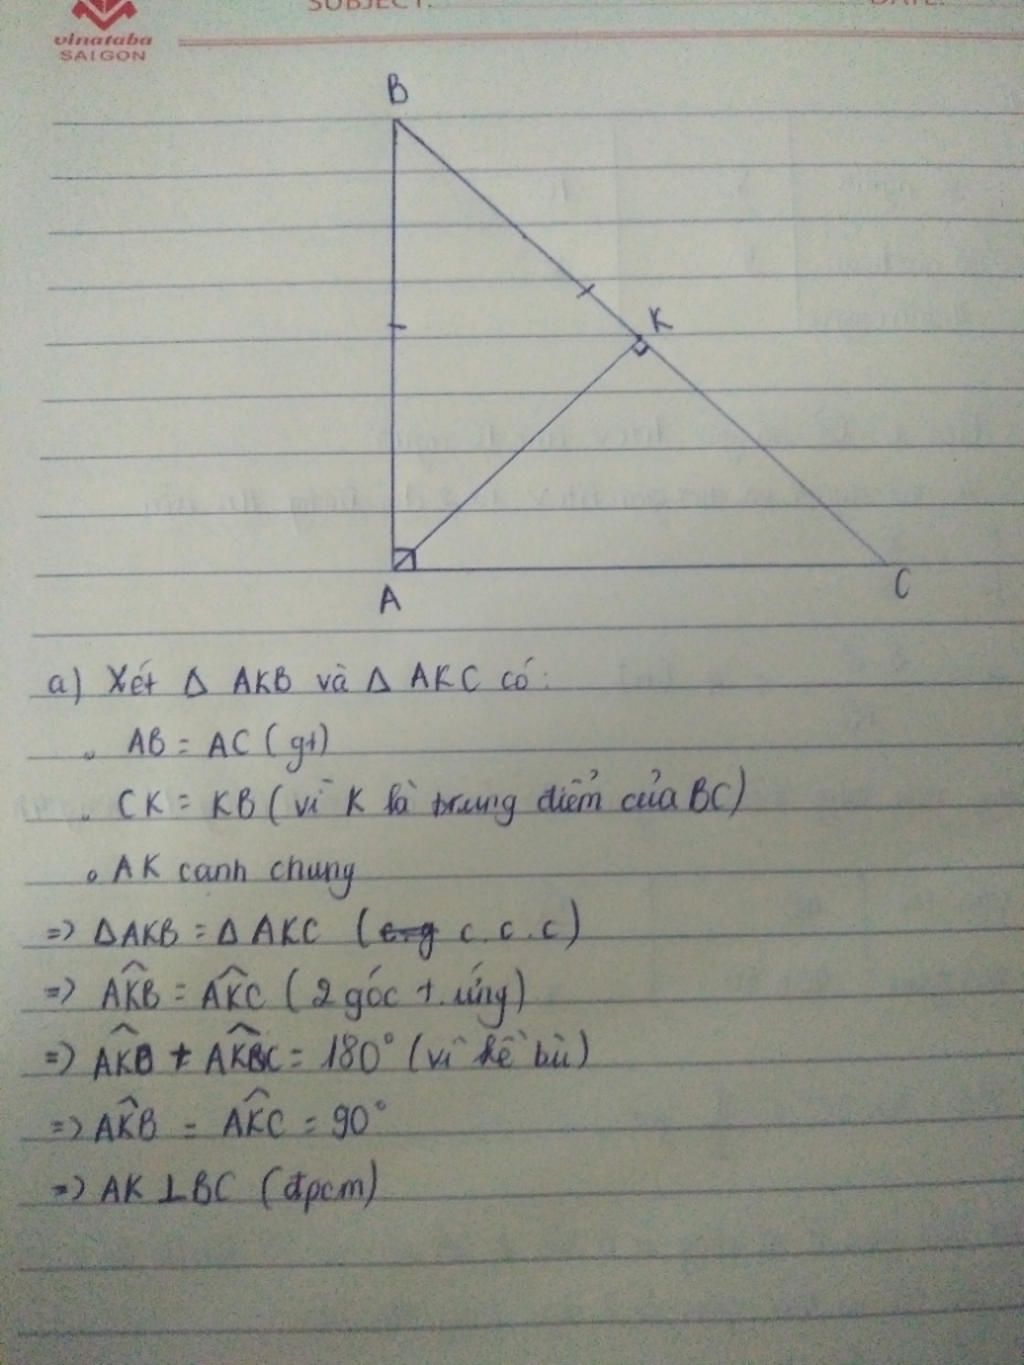 SUBJECT:
DATE:
vinataba
SAIGON
B
K
A
C
a) Xét Δ AKB và Δ AKC có:
. AB = AC (gt)
. CK = KB (vì K là trung điểm của BC)
. AK canh chung
=> ΔAKB = Δ AKC (c.g c.c.c)
=> AK̂B = AK̂C (2 góc t.ứng)
=> AK̂B + AK̂BC = 180° (vì kề bù)
=> AK̂B = AK̂C = 90°
=> AK ⊥ BC (đpcm)